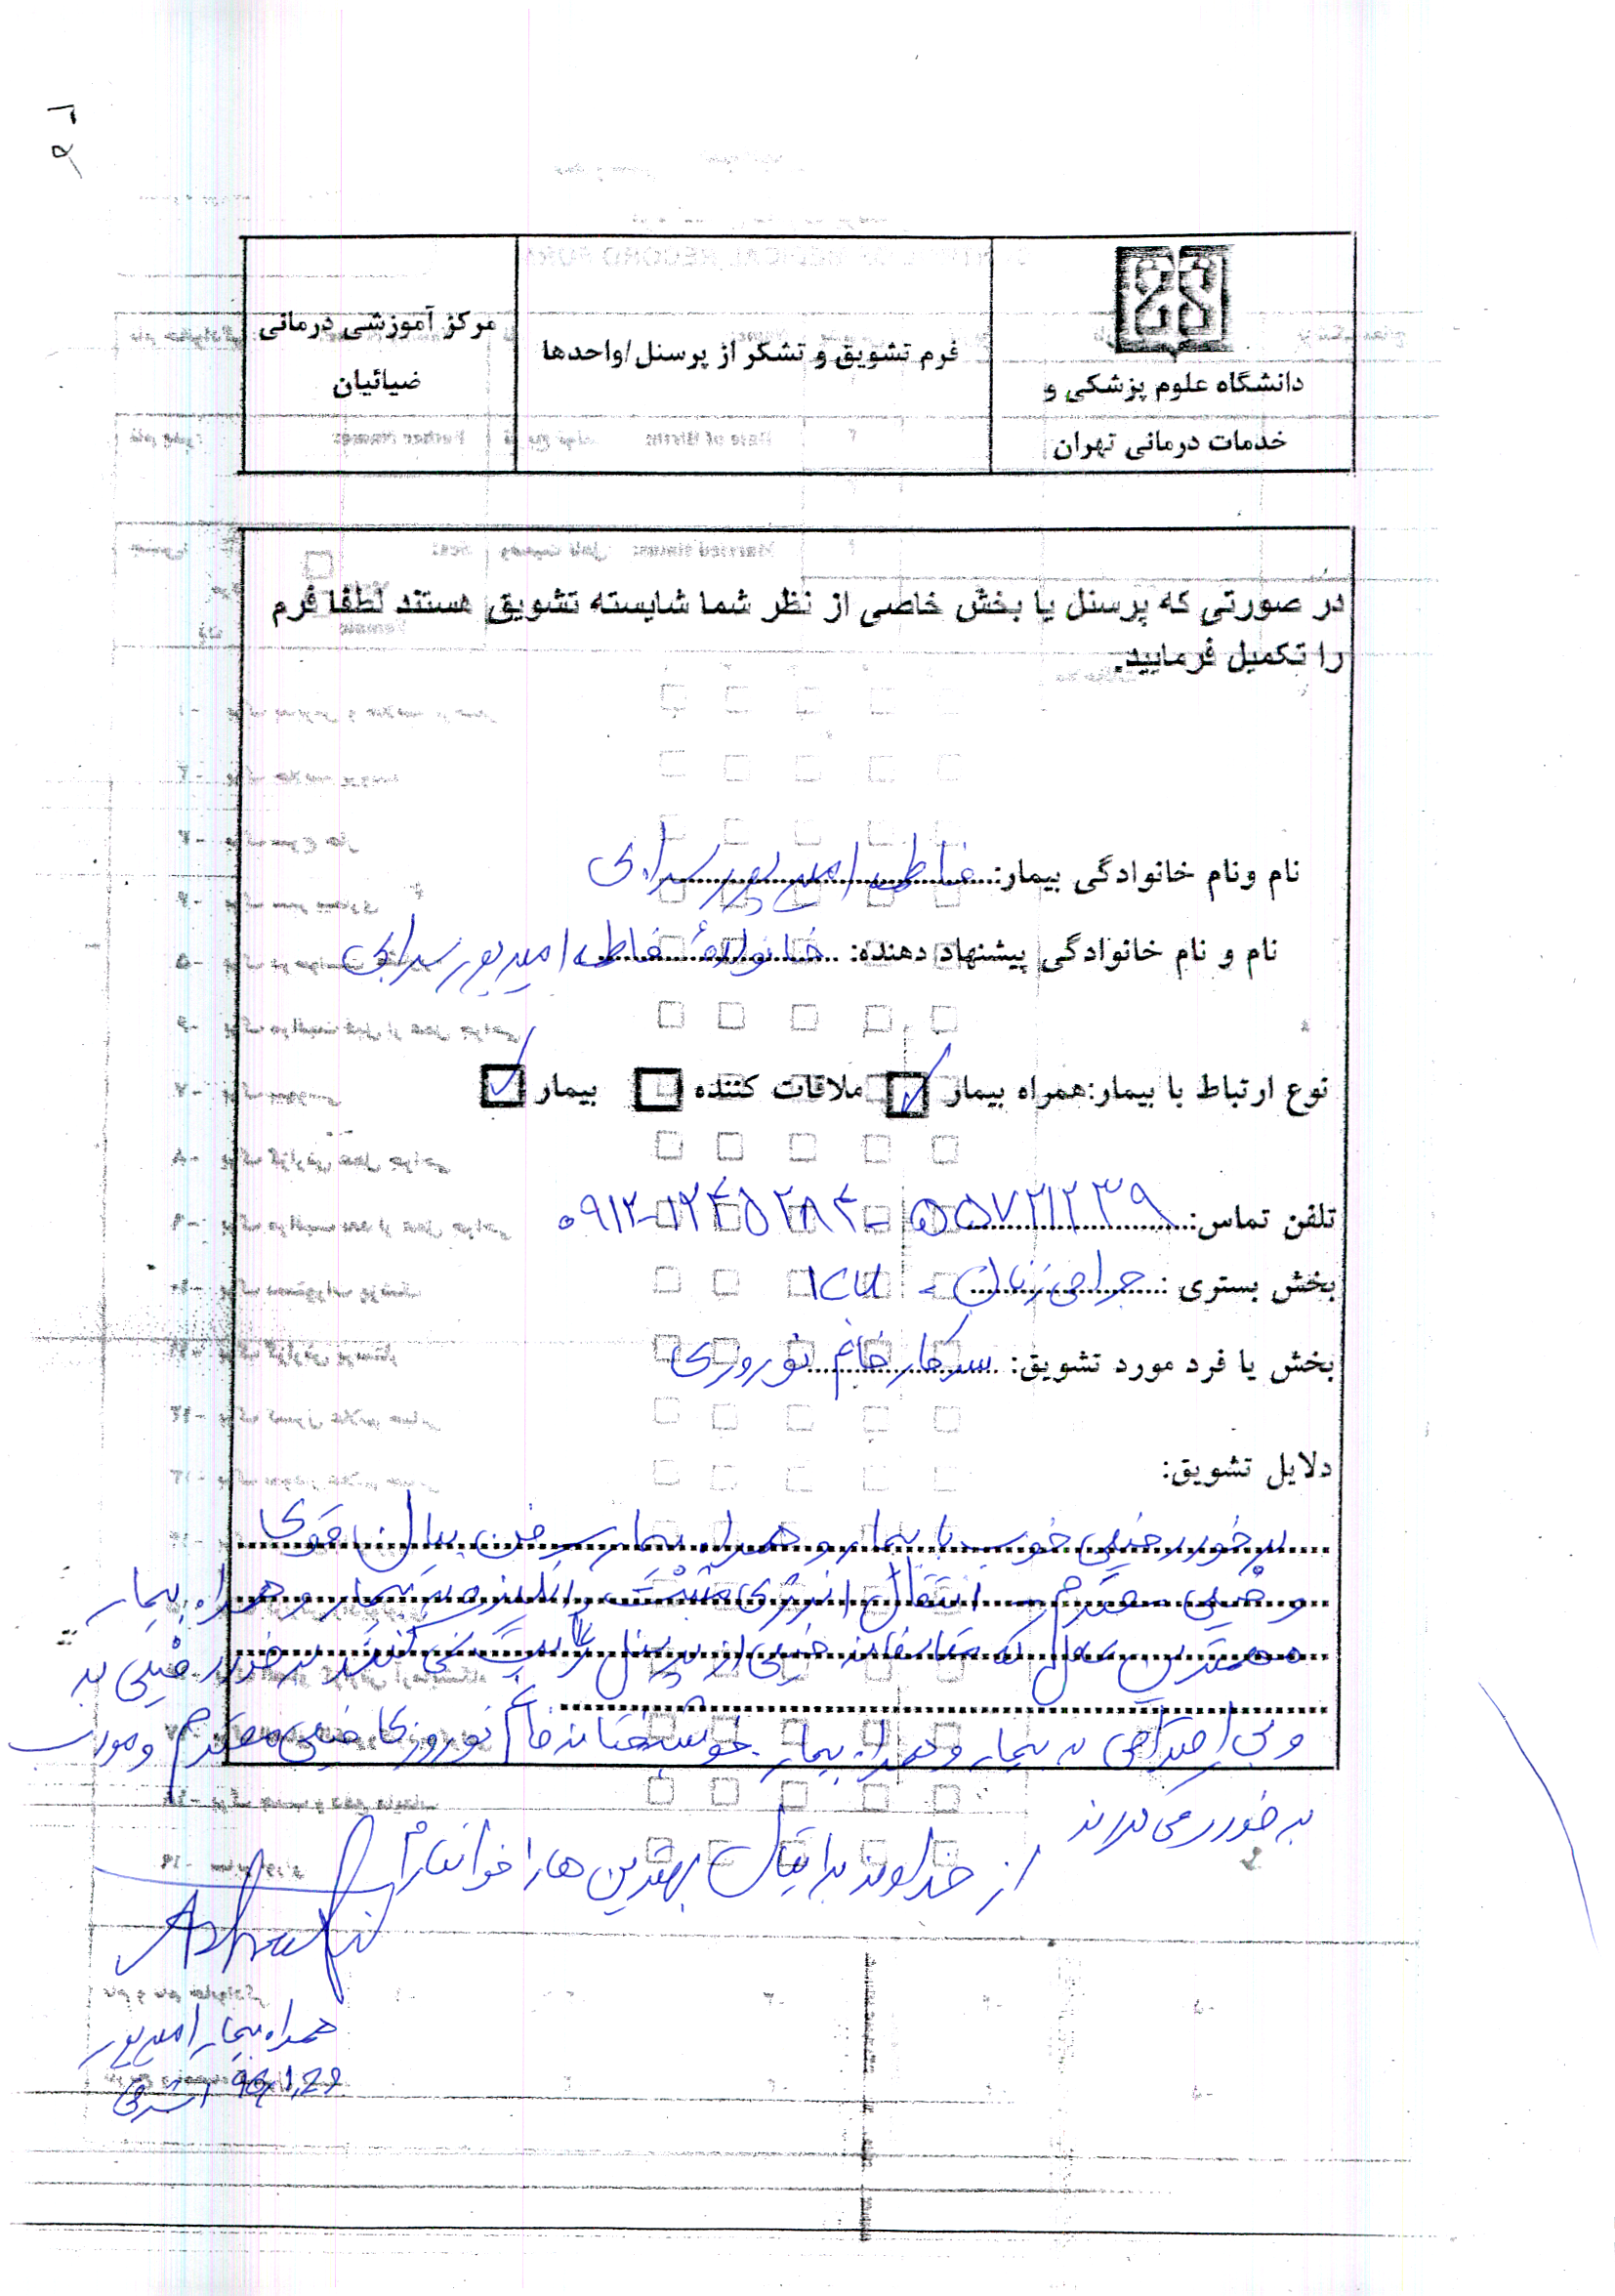 دانشگاه علوم پزشکی و
خدمات درمانی تهران
فرم تشویق و تشکر از پرسنل/واحدها
مرکز آموزشی درمانی
ضیائیان
در صورتی که پرسنل یا بخش خاصی از نظر شما شایسته تشویق هستند لطفا فرم
را تکمیل فرمایید.
نام ونام خانوادگی بیمار: فاطمه امیرپور سرابی
نام و نام خانوادگی پیشنهاد دهنده: خانوادهٔ فاطمه امیرپور سرابی
نوع ارتباط با بیمار:همراه بیمار ملاقات کننده بیمار
تلفن تماس: ۵۵۷۲۱۲۳۹ - ۰۹۱۲-۱۲۴۵۲۸۴
بخش بستری : جراحی زنان - ICU
بخش یا فرد مورد تشویق: سرکار خانم نوروزی
دلایل تشویق:
برخورد خیلی خوب با بیمار و همراه بیمار فن بیان قوی
و خیلی محترم انتقال انرژی مثبت و انگیزه به بیمار و همراه بیمار
مهمترین عامل که متاسفانه خیلی از پرسنل رعایت نمی کنند برخورد خیلی بد
و بی احترامی به بیمار و همراه بیمار خوشبختانه خانم نوروزی خیلی محترم و مودب
برخورد می کردند
از خداوند برایتان بهترین ها را خواستارم
همراه بیمار امیرپور
اشرفی 96,1,29